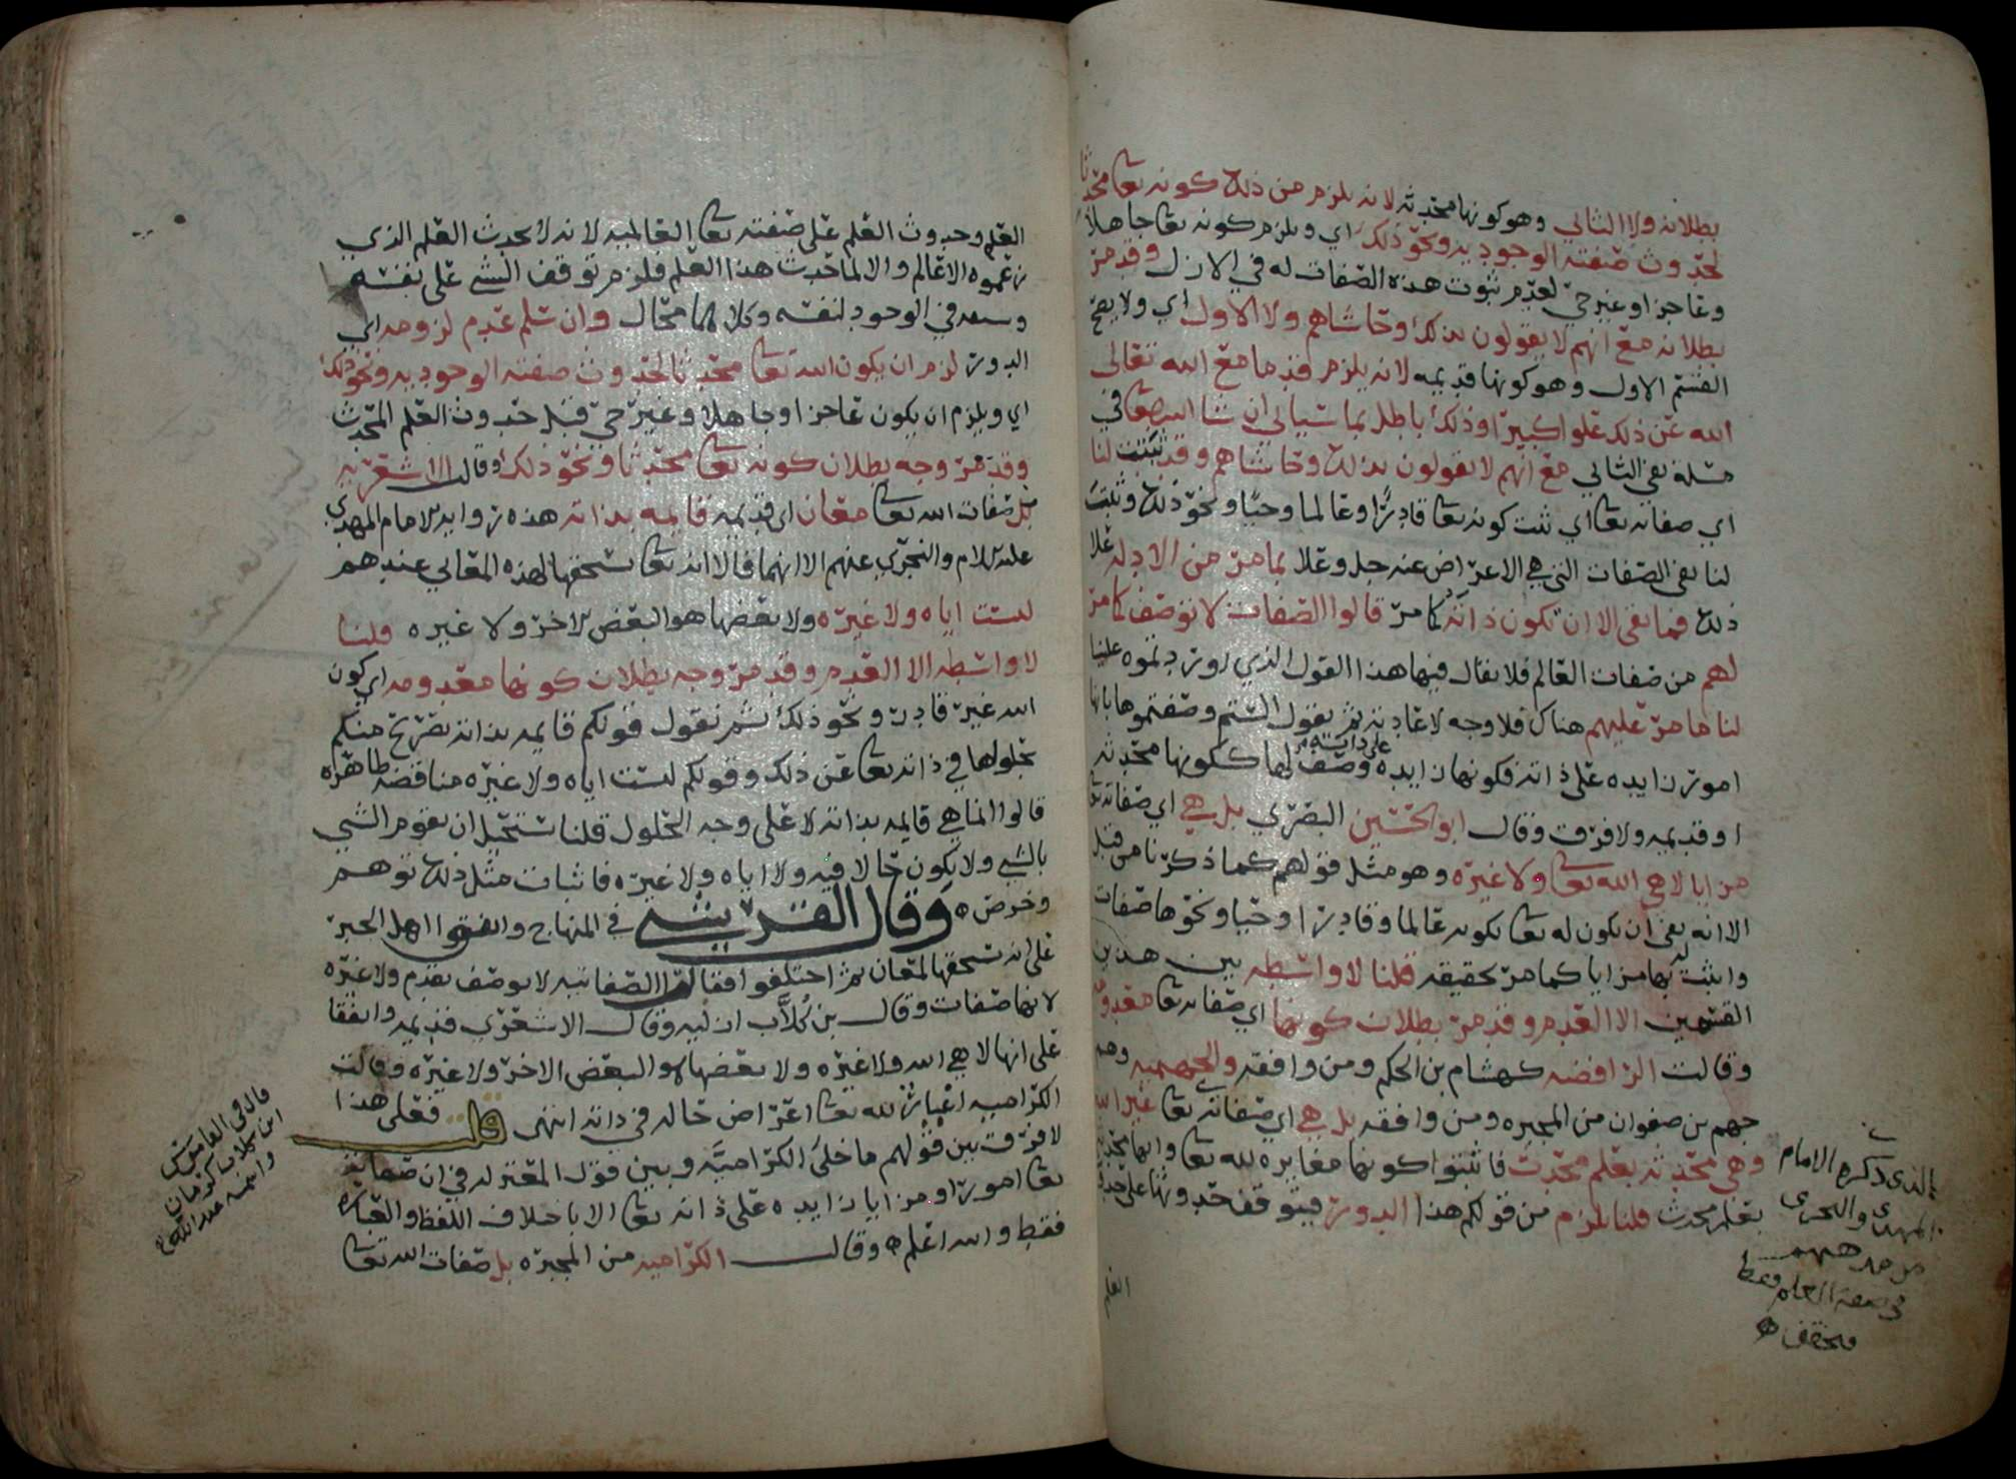 بطلانه ولا الثاني وهو كونها محدثه لانه يلزم من ذلك كونه تعا محدثا
لحدوث صفته الوجوديه ونحو ذلك اي ويلزم كونه تعا جاهلا
وعاجزا وغير حي لعدم ثبوت هذه الصفات له في الازل وقد مر
بطلانه مع انهم لا يقولون بذلك وحاشاهم ولا الاول اي ولا يصح
القسم الاول وهو كونها قديمه لانه يلزم قدما مع الله تعالى
الله عن ذلك علوا كبيرا وذلك باطل بما سياتي ان شا الله تعا في
مسلة نفي الثاني مع انهم لا يقولون بذلك وحاشاهم وقد ثبتت لنا
اي صفاته تعا اي ثبت كونه تعا قادرا وعالما وحيا ونحو ذلك وثبت
لنا نفي الصفات التي هي الاعراض عنه جل وعلا بما مر من الادله على
ذلك فما بقي الا ان تكون ذاته كما مر قالوا الصفات لا توصف كما مر
لهم من صفات العالم فلا يقال فيها هذا القول الذي اوردتموه علينا
لنا ما مر عليهم هناك فلا وجه لاعادته ثم نقول لستم وصفتموها بانها
امور زايده على ذاته فكونها زايده على ذاته وصف لها ككونها محدثه
او قديمه ولا فرق وقال ابو الحسين البصري بل هي اي صفاته تعا
مزايا لا هي الله تعا ولا غيره وهو مثل قولهم كما ذكرنا من قبل
الا انه نفى ان يكون له تعا بكونه عالما وقادرا وحيا ونحوها صفات
واثبت له بها مزايا كما مر تحقيقه قلنا لا واسطه بين هذين
القسمين الا العدم وقد مر بطلان كونها اي صفاته تعا معدومه
وقالت الرافضه كهشام بن الحكم ومن وافقه والجهميه وهم
جهم بن صفوان من المجبره ومن وافقه بل هي اي صفاته تعا غير الله
وهي محدثه بعلم محدث فاثبتوا كونها مغايره لله تعا وانها محدثه
بعلم محدث قلنا يلزم من قولكم هذا الدور فيتوقف حدوثها على حدوث
العلم
الذي ذكره الامام
المهدي والنجري
العلم وحدوث العلم على صفته تعا العالميه لانه لا يحدث العلم الذي
زعموه الا عالم والا لما حدث هذا العلم فلزم توقف الشي على نفسه
وسبقه في الوجود لنفسه وكلاهما محال وان سلم عدم لزومه اي
الدور لزم ان يكون الله تعا محدثا لحدوث صفته الوجوديه ونحو ذلك
اي ويلزم ان يكون عاجزا وجاهلا وغير حي قبل حدوث العلم المحدث
وقد مر وجه بطلان كونه تعا محدثا ونحو ذلك وقالت الاشعريه
بل صفات الله تعا معان اي قديمه قايمه بذاته هذه زوايد الامام المهدي
عليه السلام والنجري عنهم الا انهما قالا انه تعا يستحقها لهذه المعاني عندهم
ليست اياه ولا غيره ولا بعضها هو البعض الاخر ولا غيره قلنا
لا واسطه الا العدم وقد مر وجه بطلان كونها معدومه اي كون
الله غير قادر ونحو ذلك ثم نقول قولكم قايمه بذاته تصريح منكم
بحلولها في ذاته تعا عن ذلك وقولكم ليست اياه ولا غيره مناقضه ظاهره
قالوا انما هي قايمه بذاته لا على وجه الحلول قلنا يستحيل ان يقوم الشي
بالشي ولا يكون حالا فيه ولا اياه ولا غيره فاثبات مثل ذلك توهم
وخرص ه وقال القرشي في المنهاج واتفقوا اهل الجبر
على انه يستحقها لمعان ثم اختلفوا فقالت الصفاتيه لا توصف بقدم ولا غيره
لانها صفات وقال بن كلاب ازليه وقال الاشعري قديمه واتفقا
على انها لا هي الله ولا غيره ولا بعضها هو البعض الاخر ولا غيره وقالت
الكراميه اغيار لله تعا اعراض حاله في ذاته انتهى قلت فعلى هذا
لا فرق بين قولهم ما خلى الكراميه وبين قول المعتزله في ان صفاته
تعا امور او مزايا زايده على ذاته تعا الا باختلاف اللفظ والعباره
فقط والله اعلم ه وقالت الكراميه من المجبره بل صفات الله تعا
قال في القاموس
ابن كلاب كرمان
واسمه عبدالله